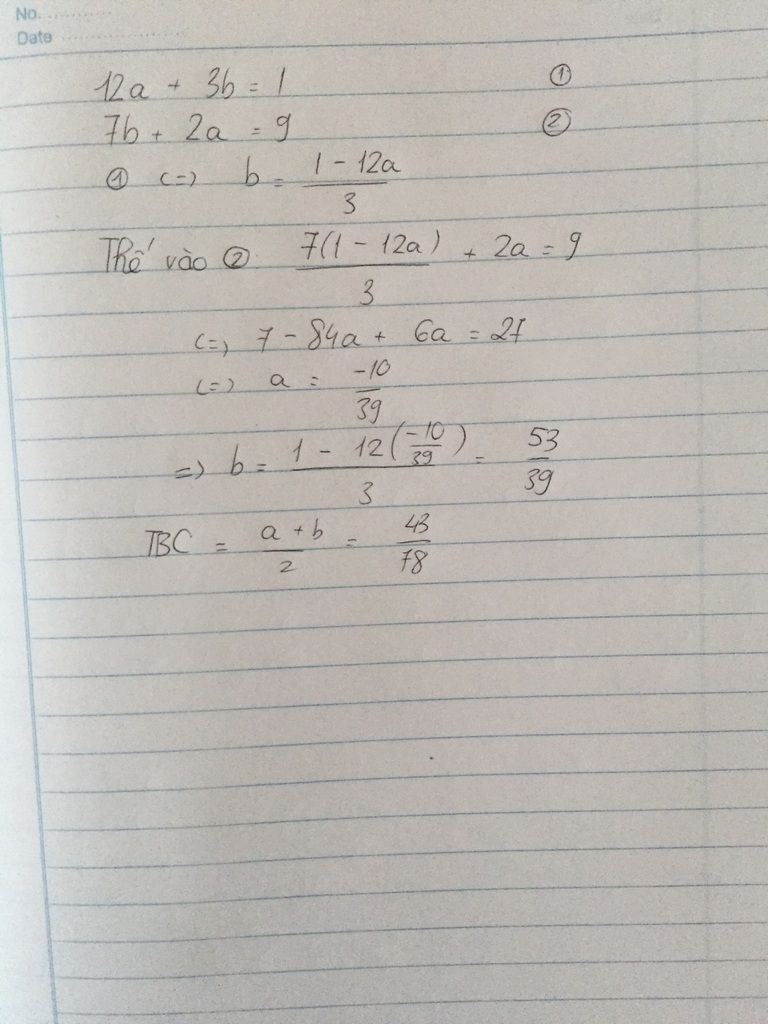 No. ............
Date .....................
12a + 3b = 1 ①
7b + 2a = 9 ②
① (=) b = (1 - 12a)/3
Thế vào ② 7(1 - 12a)/3 + 2a = 9
(=) 7 - 84a + 6a = 27
(=) a = -10/39
=) b = (1 - 12(-10/39))/3 = 53/39
TBC = (a + b)/2 = 43/78